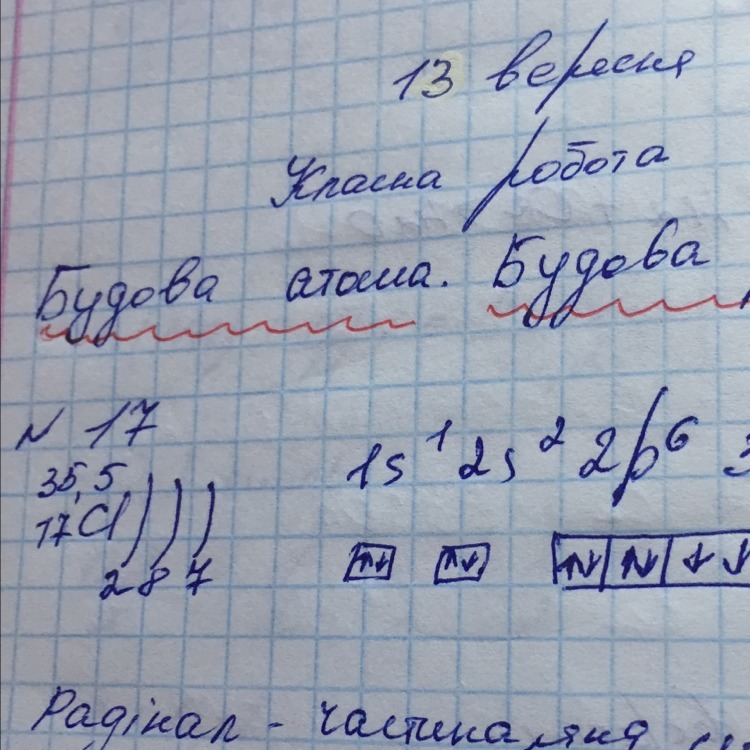 13 вересня
Класна робота
Будова атома. Будова
N 17
35,5
17Cl ) ) ) 1s¹ 2s² 2p⁶ 3
2 8 7
Радікал - частина, яка